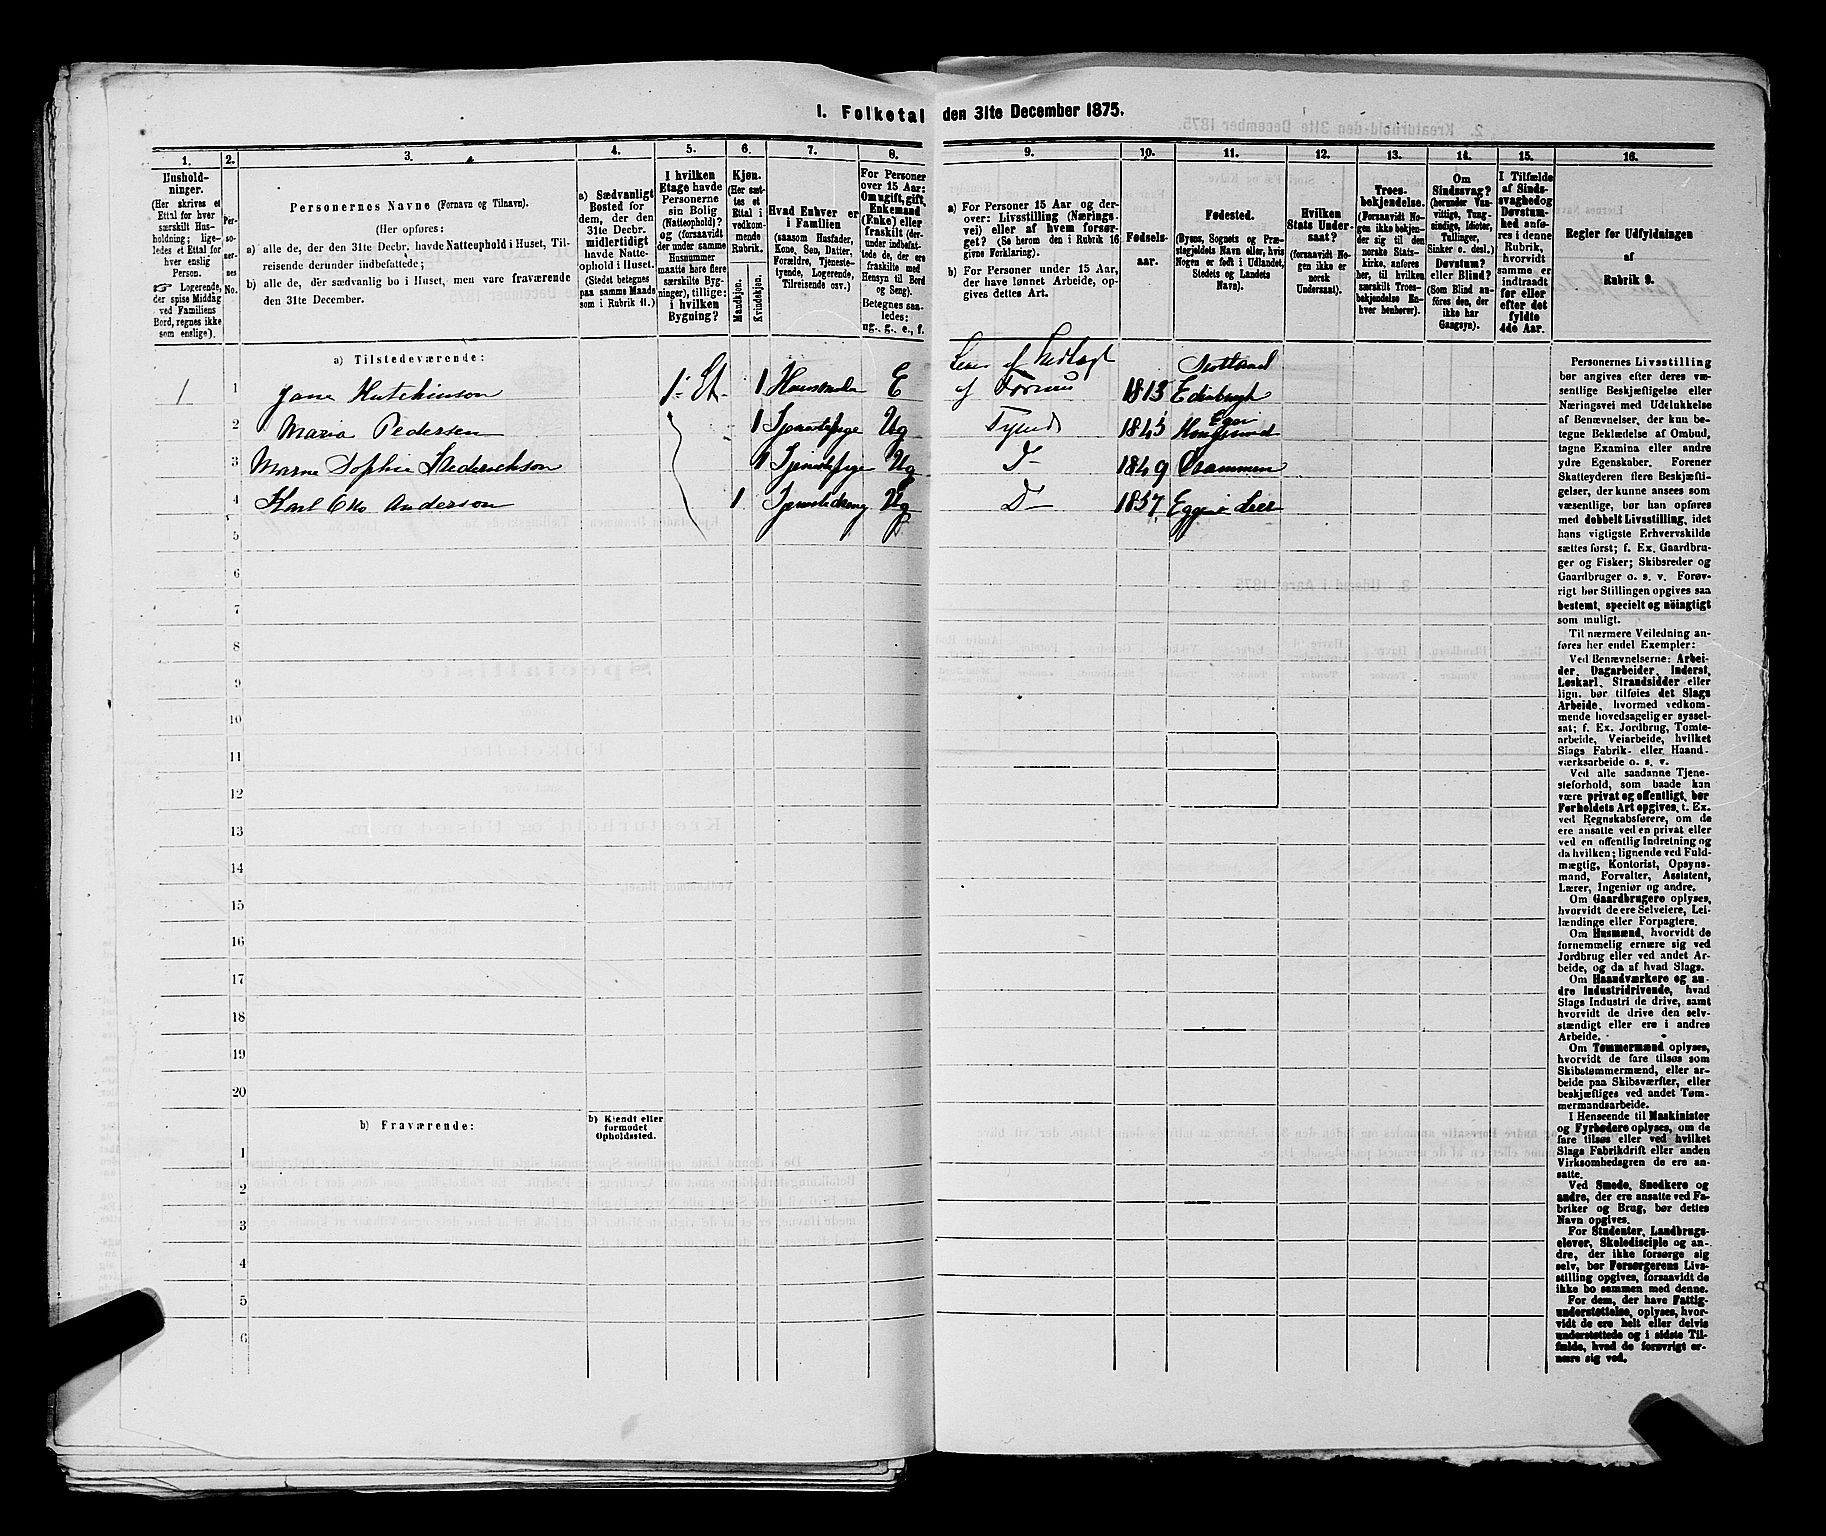 1. Folketal den 31te December 1875.
1. 2. 3. 4. 5. 6. 7. 8. 9. 10. 11. 12. 13. 14. 15. 16.
Husholdninger.
(Her skrives et
Ettal for hver
særskilt Husholdning; ligeledes
et Ettal for
hver enslig
Person.
☞ Logerende,
der spise Middag
ved Familiens
Bord, regnes ikke
som enslige).
Personernes No.
Personernes Navne (Fornavn og Tilnavn).
(Her opføres:
a) alle de, der den 31te Decbr. havde Natteophold i Huset, Tilreisende derunder indbefattede;
b) alle de, der sædvanlig bo i Huset, men vare fraværende
den 31te December.
a) Sædvanligt
Bosted for
dem, der den
31te Decbr.
midlertidigt
havde Natteophold i Huset.
(Stedet betegnes
paa samme Maade
som i Rubrik 11.)
I hvilken
Etage havde
Personerne
sin Bolig
(Natteophold)?
og (forsaavidt
der under samme
Husnummer
maatte høre flere
særskilte Bygninger), tillige:
i hvilken
Bygning?
Kjøn.
(Her sættes et
Ettal i
vedkommende
Rubrik.
Mandkjøn.
Kvindekjøn.
Hvad Enhver er
i Familien
(saasom Husfader,
Kone, Søn, Datter,
Forældre, Tjenestetyende, Logerende,
Tilreisende osv.)
For Personer
over 15 Aar:
Om ugift, gift,
Enkemand
(Enke) eller
fraskilt (derunder indbefattede de, der ere
fraskilte med
Hensyn til Bord
og Seng).
Betegnes saaledes:
ug., g., e., f.
a) For Personer 15 Aar og derover: Livsstilling (Næringsvei) eller af hvem forsørget? (Se herom den i Rubrik 16
givne Forklaring).
b) For Personer under 15 Aar,
der have lønnet Arbeide, opgives dettes Art.
Fødselsaar.
Fødested.
(Byens, Sognets og Præstegjeldets Navn eller, hvis
Nogen er født i Udlandet,
Stedets og Landets
Navn).
Hvilken
Stats Undersaat?
(forsaavidt Nogen ikke er
norsk
Undersaat).
Troesbekjendelse.
(Forsaavidt Nogen ikke bekjender sig til den
norske Statskirke, anføres
her, til hvilken
særskilt Troesbekjendelse Enhver henhører).
Om
Sindssvag?
(herunder Vanvittige, Tungsindige, Idioter,
Tullinger,
Sinker o. desl.)
Døvstum?
eller Blind?
(Som Blind anføres den, der
ikke har
Gangsyn).
I Tilfælde
af Sindssvaghed og
Døvstumhed anføres i denne
Rubrik,
hvorvidt
samme er
indtraadt
før eller
efter det
fyldte
4de Aar.
Regler for Udfyldningen
af
Rubrik 9.
a) Tilstedeværende:
1 1 Jane Hutchinson 1. Et. 1 E 1813 Skotland Edinburgh
2 Maria Pedersen 1 Tjenestepige Ug Tyende 1843 Eger
3 Sophie 1 Tjenestepige Ug D- 1849 Drammen
4 Karl Otto Anderson 1 Tjenestedreng Ug D- 1857 Egge i Lier
5
6
7
8
9
10
11
12
13
14
15
16
17
18
19
20
b) Fraværende:
b) Kjendt eller
formodet
Opholdssted.
1
2
3
4
5
6
Personernes Livsstilling
bør angives efter deres væsentlige Beskjæftigelse eller
Næringsvei med Udelukkelse
af Benævnelser, der kun betegne Beklædelse af Ombud,
tagne Examina eller andre
ydre Egenskaber. Forener
Skatteyderen flere Beskjæftigelser, der kunne ansees som
væsentlige, bør han opføres
med dobbelt Livsstilling, idet
hans vigtigste Erhvervskilde
sættes først; f. Ex. Gaardbruger og Fisker; Skibsreder og
Gaardbruger o. s. v. Forøvrigt bør Stillingen opgives saa
bestemt, specielt og nöiagtigt
som muligt.
Til nærmere Veiledning anføres her endel Exempler:
Ved Benævnelserne: Arbeider, Dagarbeider, Inderst,
Løskarl, Strandsidder eller
lign. bør tilføies det Slags
Arbeide, hvormed vedkommende hovedsagelig er sysselsat; f. Ex. Jordbrug, Tomtearbeide, Veiarbeide, hvilket
Slags Fabrik- eller Haandværksarbeide o. s. v.
Ved alle saadanne Tjenesteforhold, som baade kan
være privat og offentligt, bør
Forholdets Art opgives, t. Ex.
ved Regnskabsførere, om de
ere ansatte ved en privat eller
ved en offentlig Indretning og
da hvilken; lignende ved Fuldmægtig, Kontorist, Opsynsmand, Forvalter, Assistent,
Lærer, Ingeniør og andre.
Om Gaardbrugere oplyses,
hvorvidt de ere Selveiere, Leilændinge eller Forpagtere.
Om Husmænd, hvorvidt de
fornemmelig ernære sig ved
Jordbrug eller ved andet Arbeide, og da af hvad Slags.
Om Haandværkere og andre Industridrivende, hvad
Slags Industri de drive, samt
hvorvidt de drive den selvstændigt eller ere i andres
Arbeide.
Om Tømmermænd oplyses,
hvorvidt de fare tilsøs som
Skibstømmermænd, eller arbeide paa Skibsværfter, eller
beskjæftiges ved andet Tømmermandsarbeide.
I Henseende til Maskinister
og Fyrbødere oplyses, om de
fare tilsøs eller ved hvilket
Slags Fabrikdrift eller anden
Virksomhedsgren de ere ansatte.
Ved Smede, Snedkere og
andre, der ere ansatte ved Fabriker og Brug, bør dettes
Navn opgives.
For Studenter, Landbrugselever, Skoledisciple og andre, der ikke forsørge sig
selv, bør Forsørgerens Livsstilling opgives, forsaavidt de
ikke bo sammen med denne.
For dem, der have Fattigunderstøttelse, oplyses, hvorvidt de ere helt eller delvis
understøttede og i sidste Tilfælde, hvad de forøvrigt ernære sig ved.